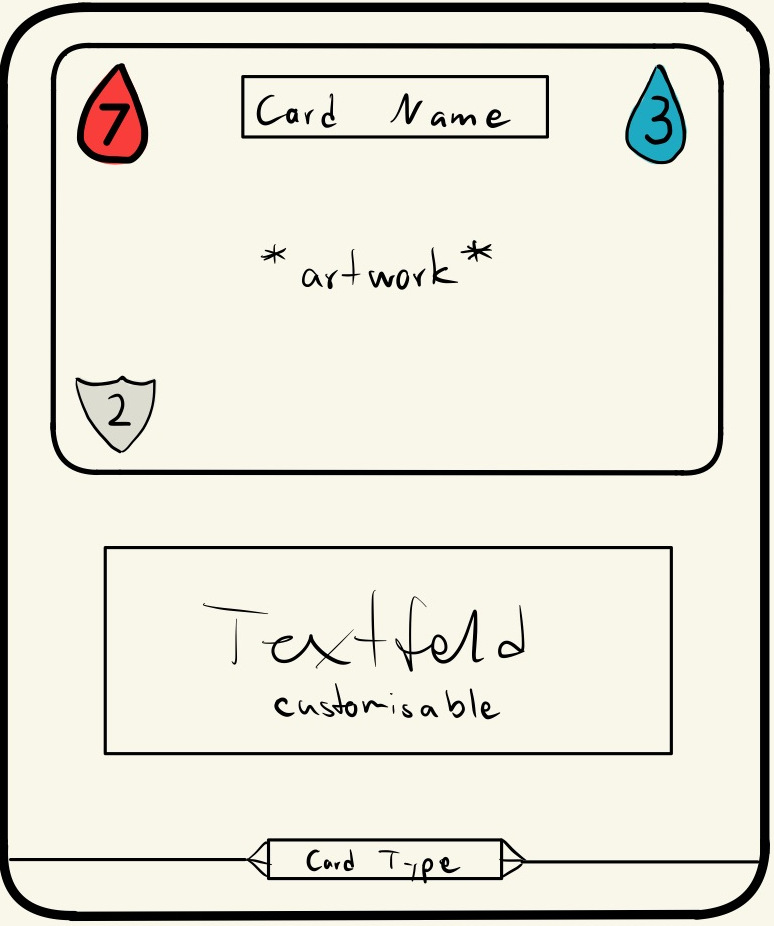 7 Card Name 3
*artwork*
2
Textfeld
customisable
Card Type